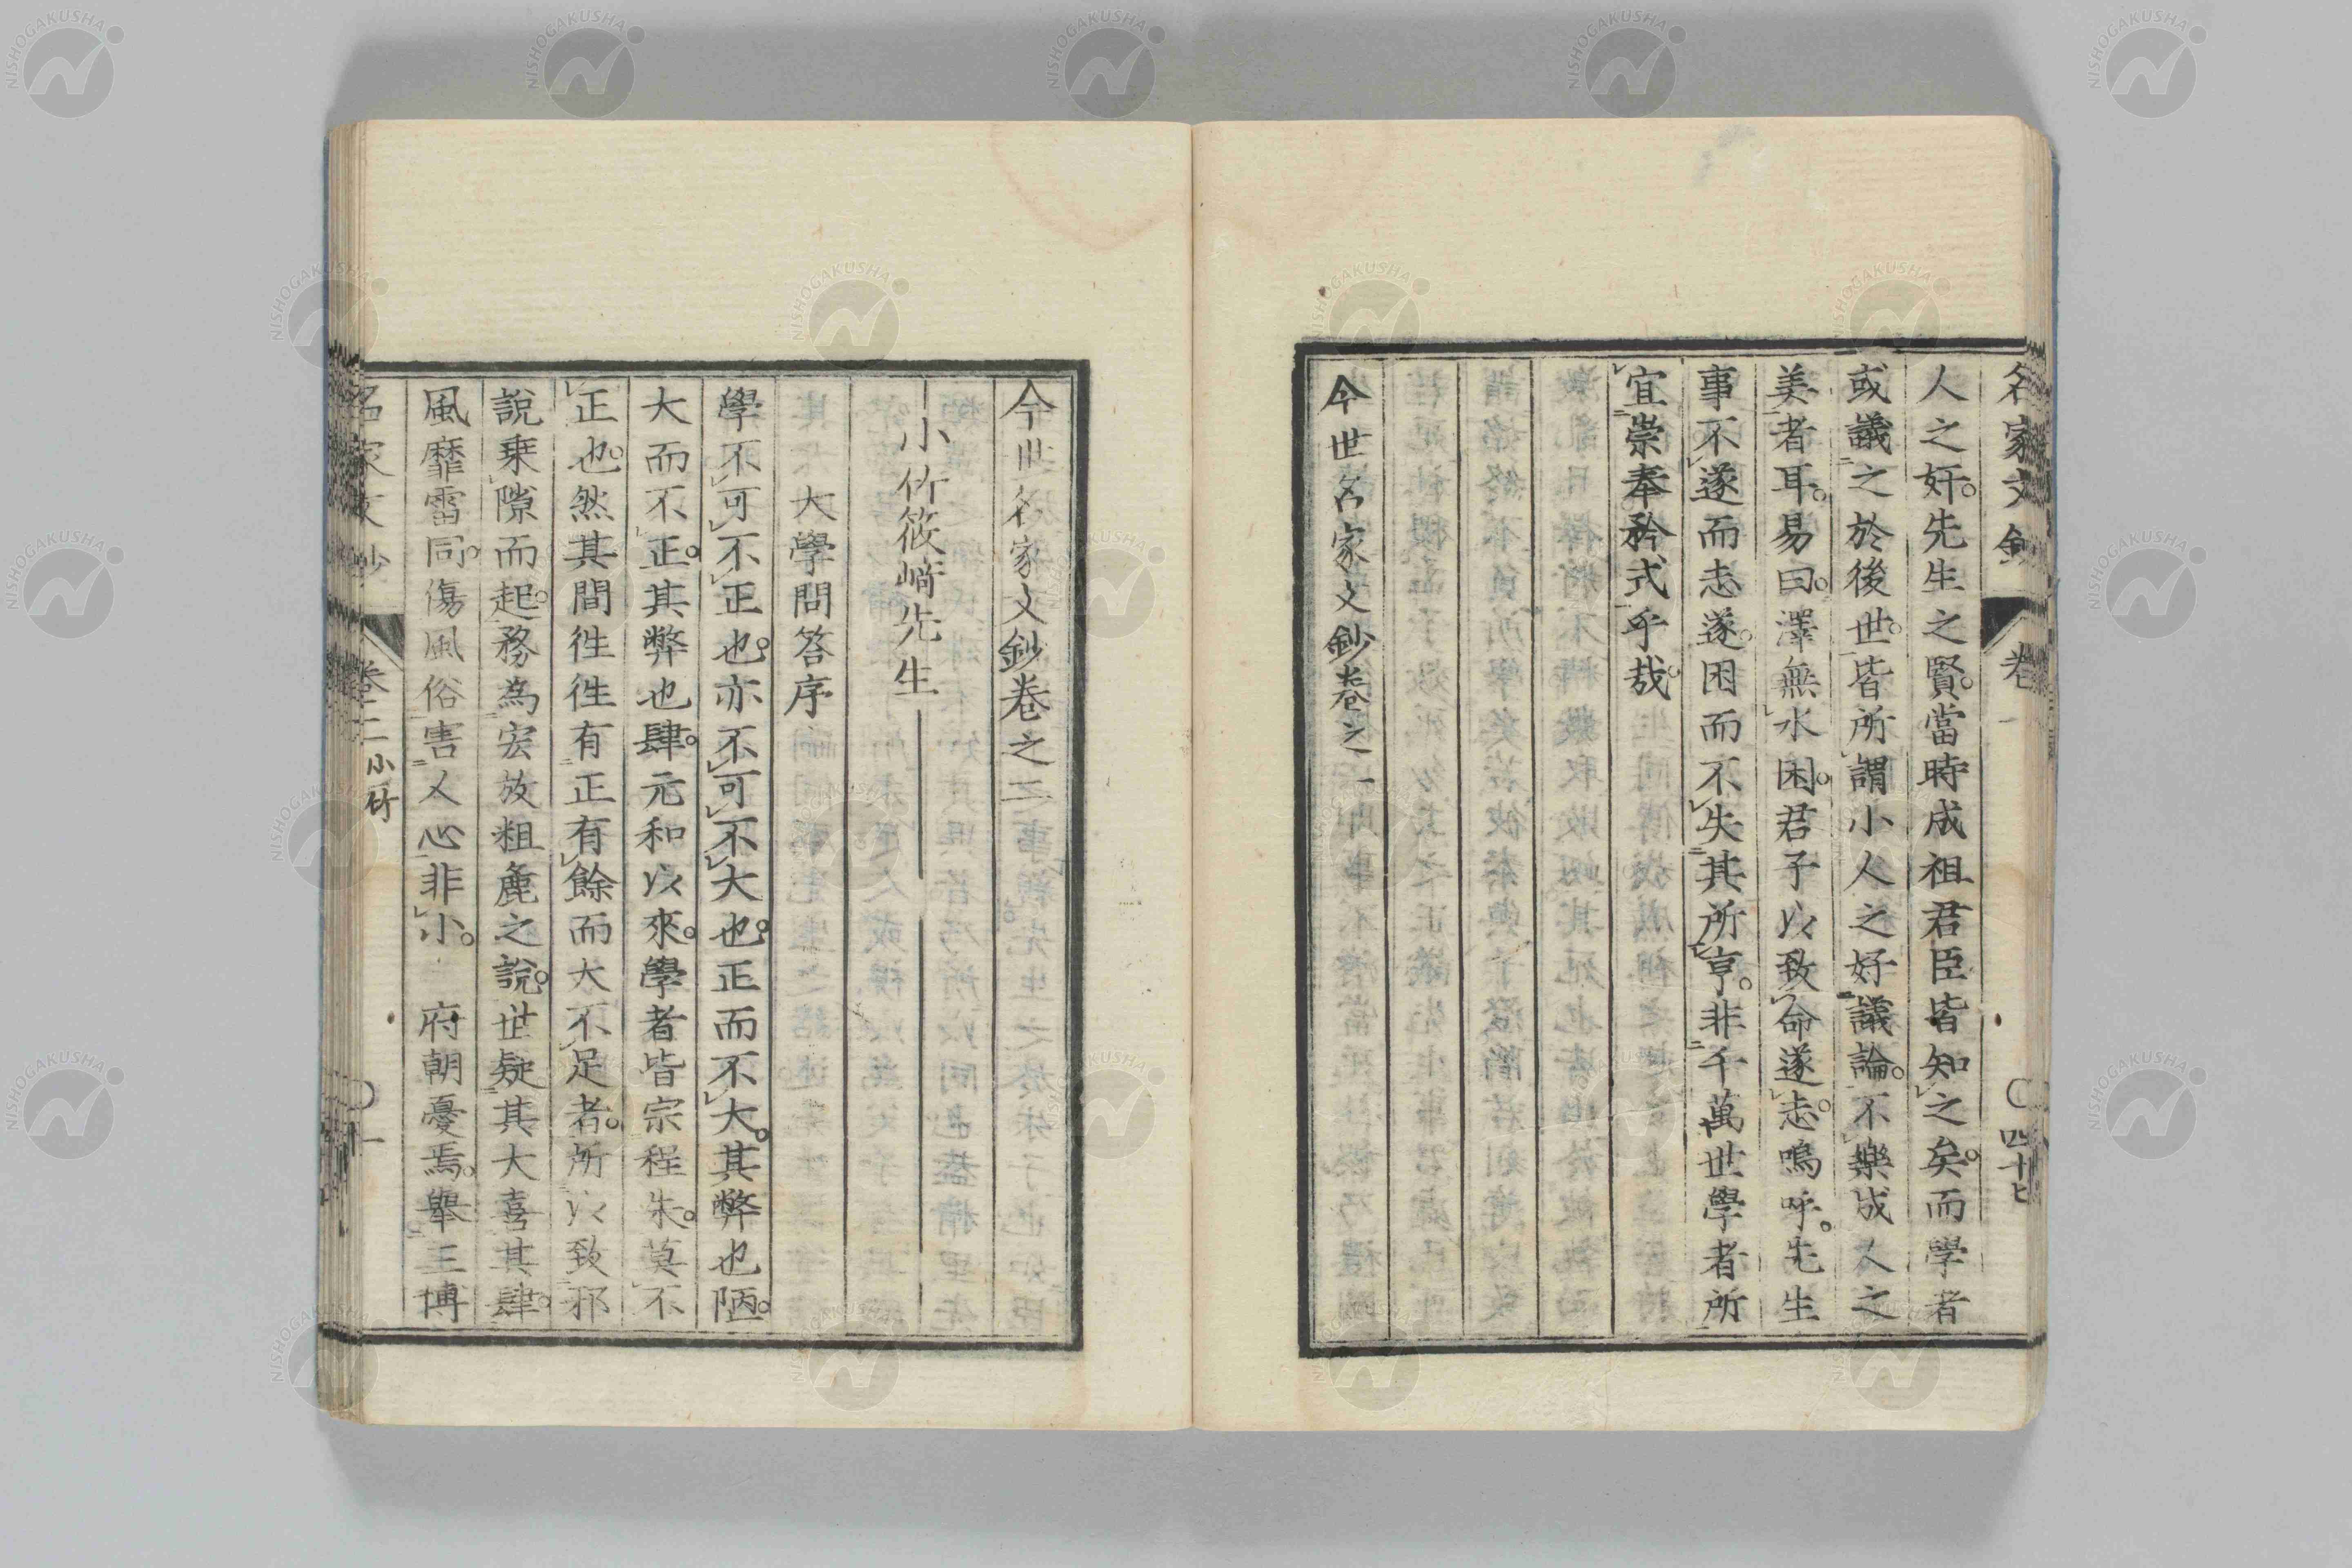 名家文鈔 卷一 〇四十七
人之奸。先生之賢。當時成祖君臣皆知之矣。而學者
或議之於後世。皆所謂小人之好議論。不樂成人之
美者耳。易曰。澤無水困。君子以致命遂志。嗚呼。先生
事不遂而志遂。困而不失其所亨。非千萬世學者所
宜崇奉矜式乎哉。
今世名家文鈔卷之一
今世名家文鈔卷之二
小竹筱﨑先生
大學問答序
學不可不正也。亦不可不大也。正而不大。其弊也陋。
大而不正。其弊也肆。元和以來。學者皆宗程朱。莫不
正也。然其間徃徃有正有餘而大不足者。所以致邪
說乗隙而起。務為宏放粗麁之說。世疑其大喜其肆。
風靡雷同。傷風俗害人心非小。府朝憂焉。舉三博
名家文鈔 卷二 小竹 〇一
NISHOGAKUSHA